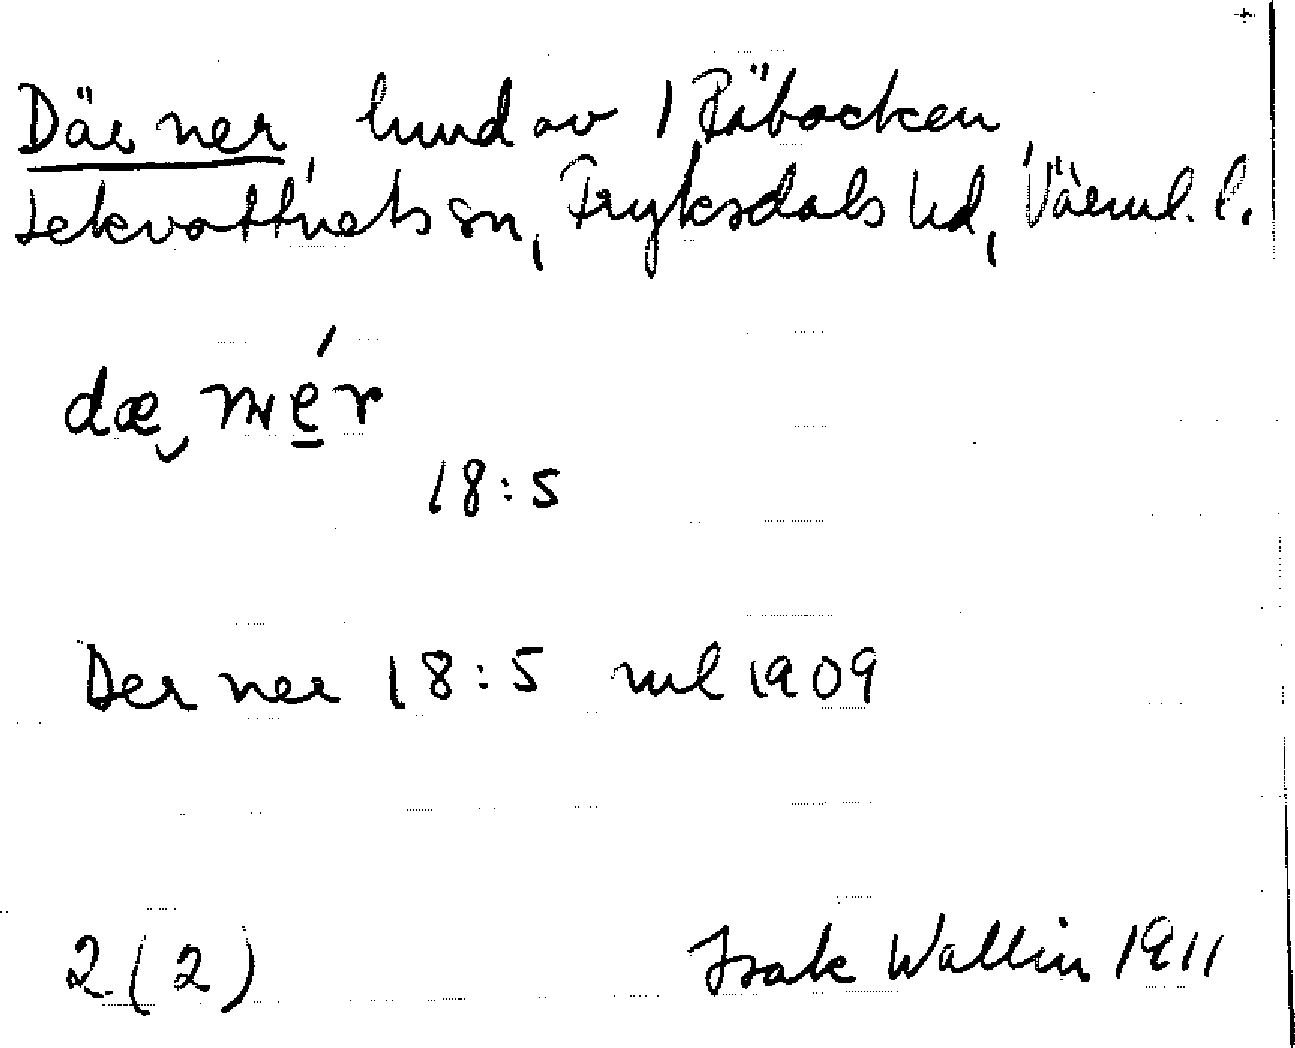 Där ner, hmd av 1 Råbäcken,
Lekvattnets sn, Fryksdals hd, Värml. l.
dæ, nér
18:5
Der ner 18:5 ml 1909
2 (2) Isak Wallin 1911